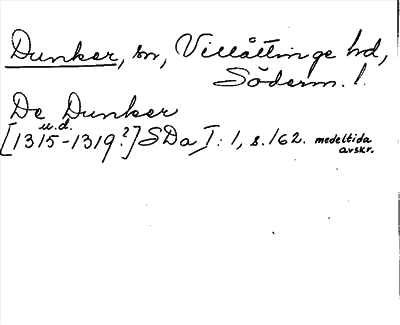 Dunker, sn, Villåttinge hd,
Söderm. l.
De Dunker
u.d.
[1315-1319?] SDa I:1, s. 162. medeltida
avskr.